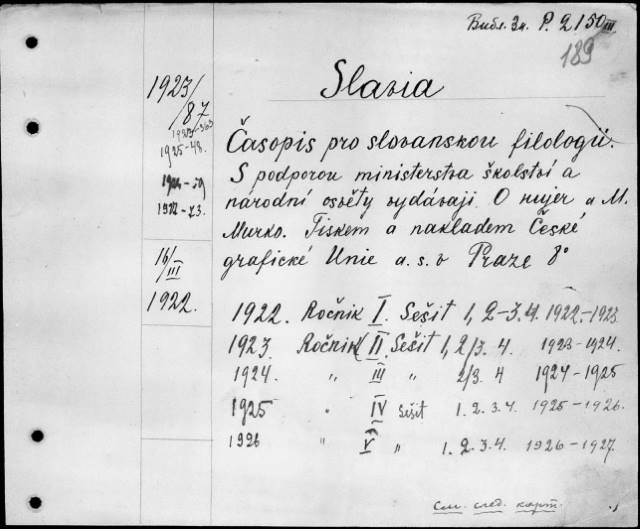 Библ. Зн. P. 2150 III
189
Slavia
1923/87
1923-363
1925-48.
1924-59
1922-23.
16/III
1922.
Časopis pro slovanskou filologii.
S podporou ministerstva školství a
národní osvěty vydávají O Hujer a M.
Murko. Tiskem a nakladem České
grafické Unie a. s. v Praze 8°
1922. Ročnik I. Sešit 1, 2-3. 4. 1922-1923
1923 Ročnik II. Sešit 1, 2/3. 4. 1923-1924.
1924. " III " 2/3. 4 1924-1925
1925 " IV Sešit 1. 2. 3. 4. 1925-1926.
1926 " V " 1. 2. 3. 4. 1926-1927.
См. след. карт.